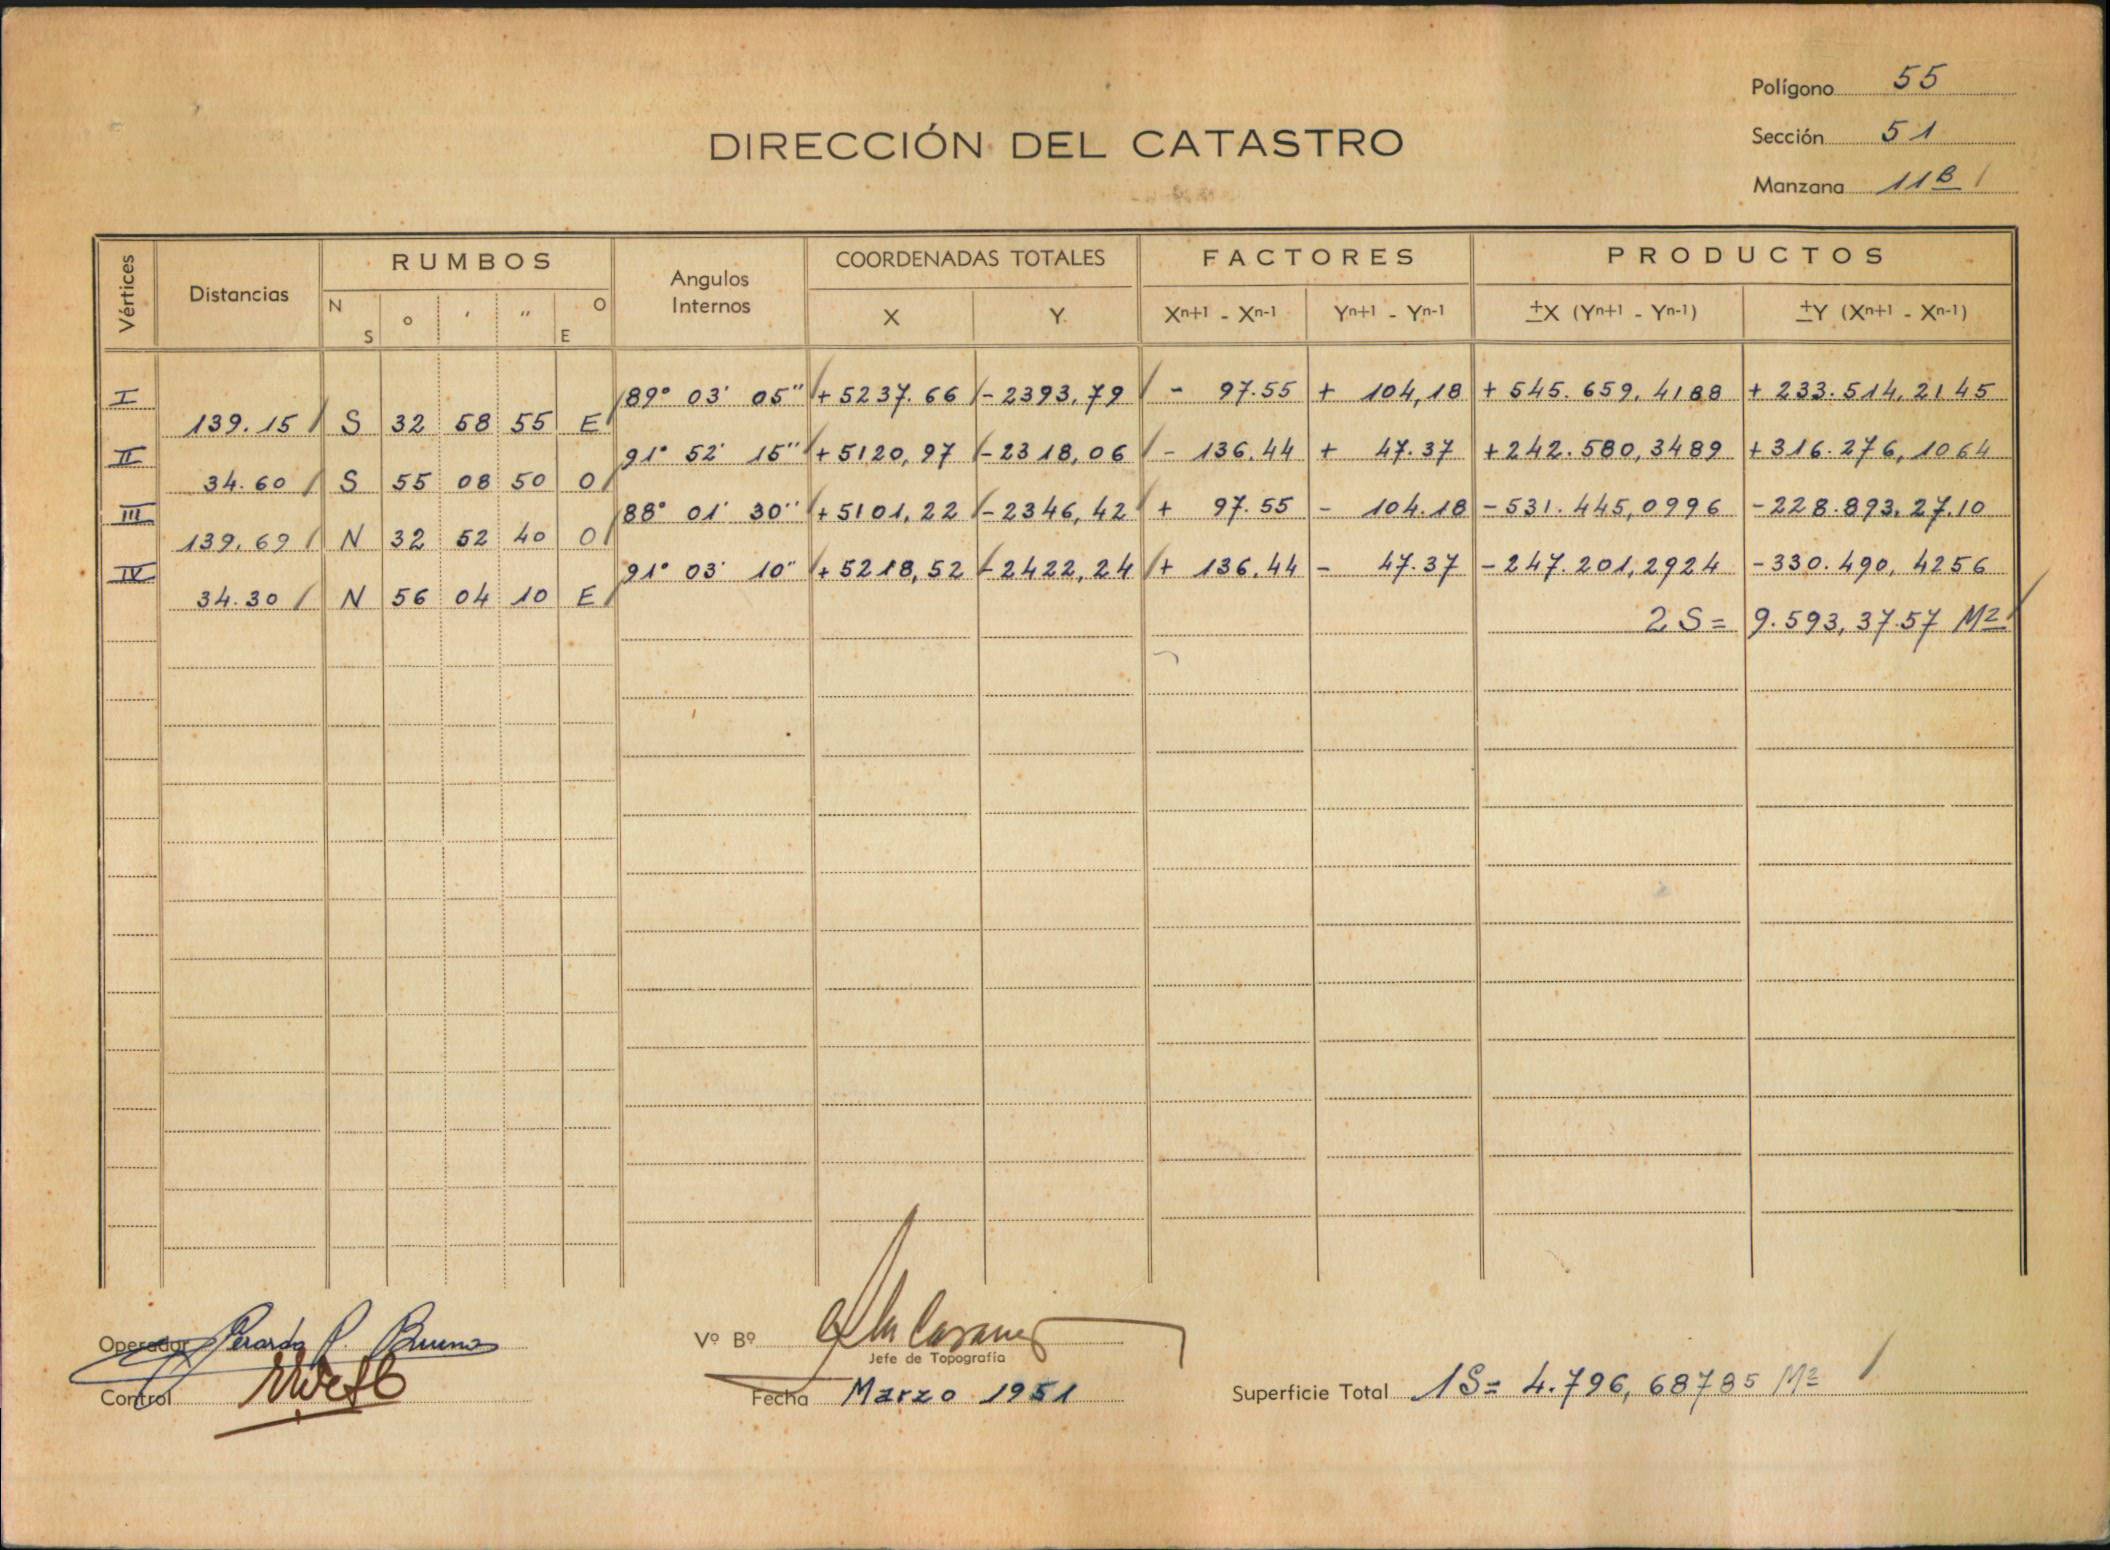 Polígono 55
DIRECCIÓN DEL CATASTRO
Sección 51
Manzana 11B
Vértices Distancias RUMBOS Angulos Internos COORDENADAS TOTALES FACTORES PRODUCTOS
N S ° ' '' O E X Y Xn+1 - Xn-1 Yn+1 - Yn-1 ±X (Yn+1 - Yn-1) ±Y (Xn+1 - Xn-1)
I 89° 03' 05'' + 5237.66 - 2393,79 - 97.55 + 104,18 + 545.659,4188 + 233.514,2145
139.15 S 32 58 55 E
II 91° 52' 15'' + 5120,97 - 2318,06 - 136.44 + 47.37 + 242.580,3489 + 316.276,1064
34.60 S 55 08 50 O
III 88° 01' 30'' + 5101,22 - 2346,42 + 97.55 - 104.18 - 531.445,0996 - 228.893.27.10
139.69 N 32 52 40 O
IV 91° 03' 10'' + 5218,52 - 2422,24 + 136,44 - 47.37 - 247.201,2924 - 330.490,4256
34.30 N 56 04 10 E
2 S = 9.593,37.57 M2
Operador Gerardo P. Bueno
Vº Bº
Jefe de Topografía
Control
Fecha Marzo 1951
Superficie Total 1S= 4.796,68785 M2